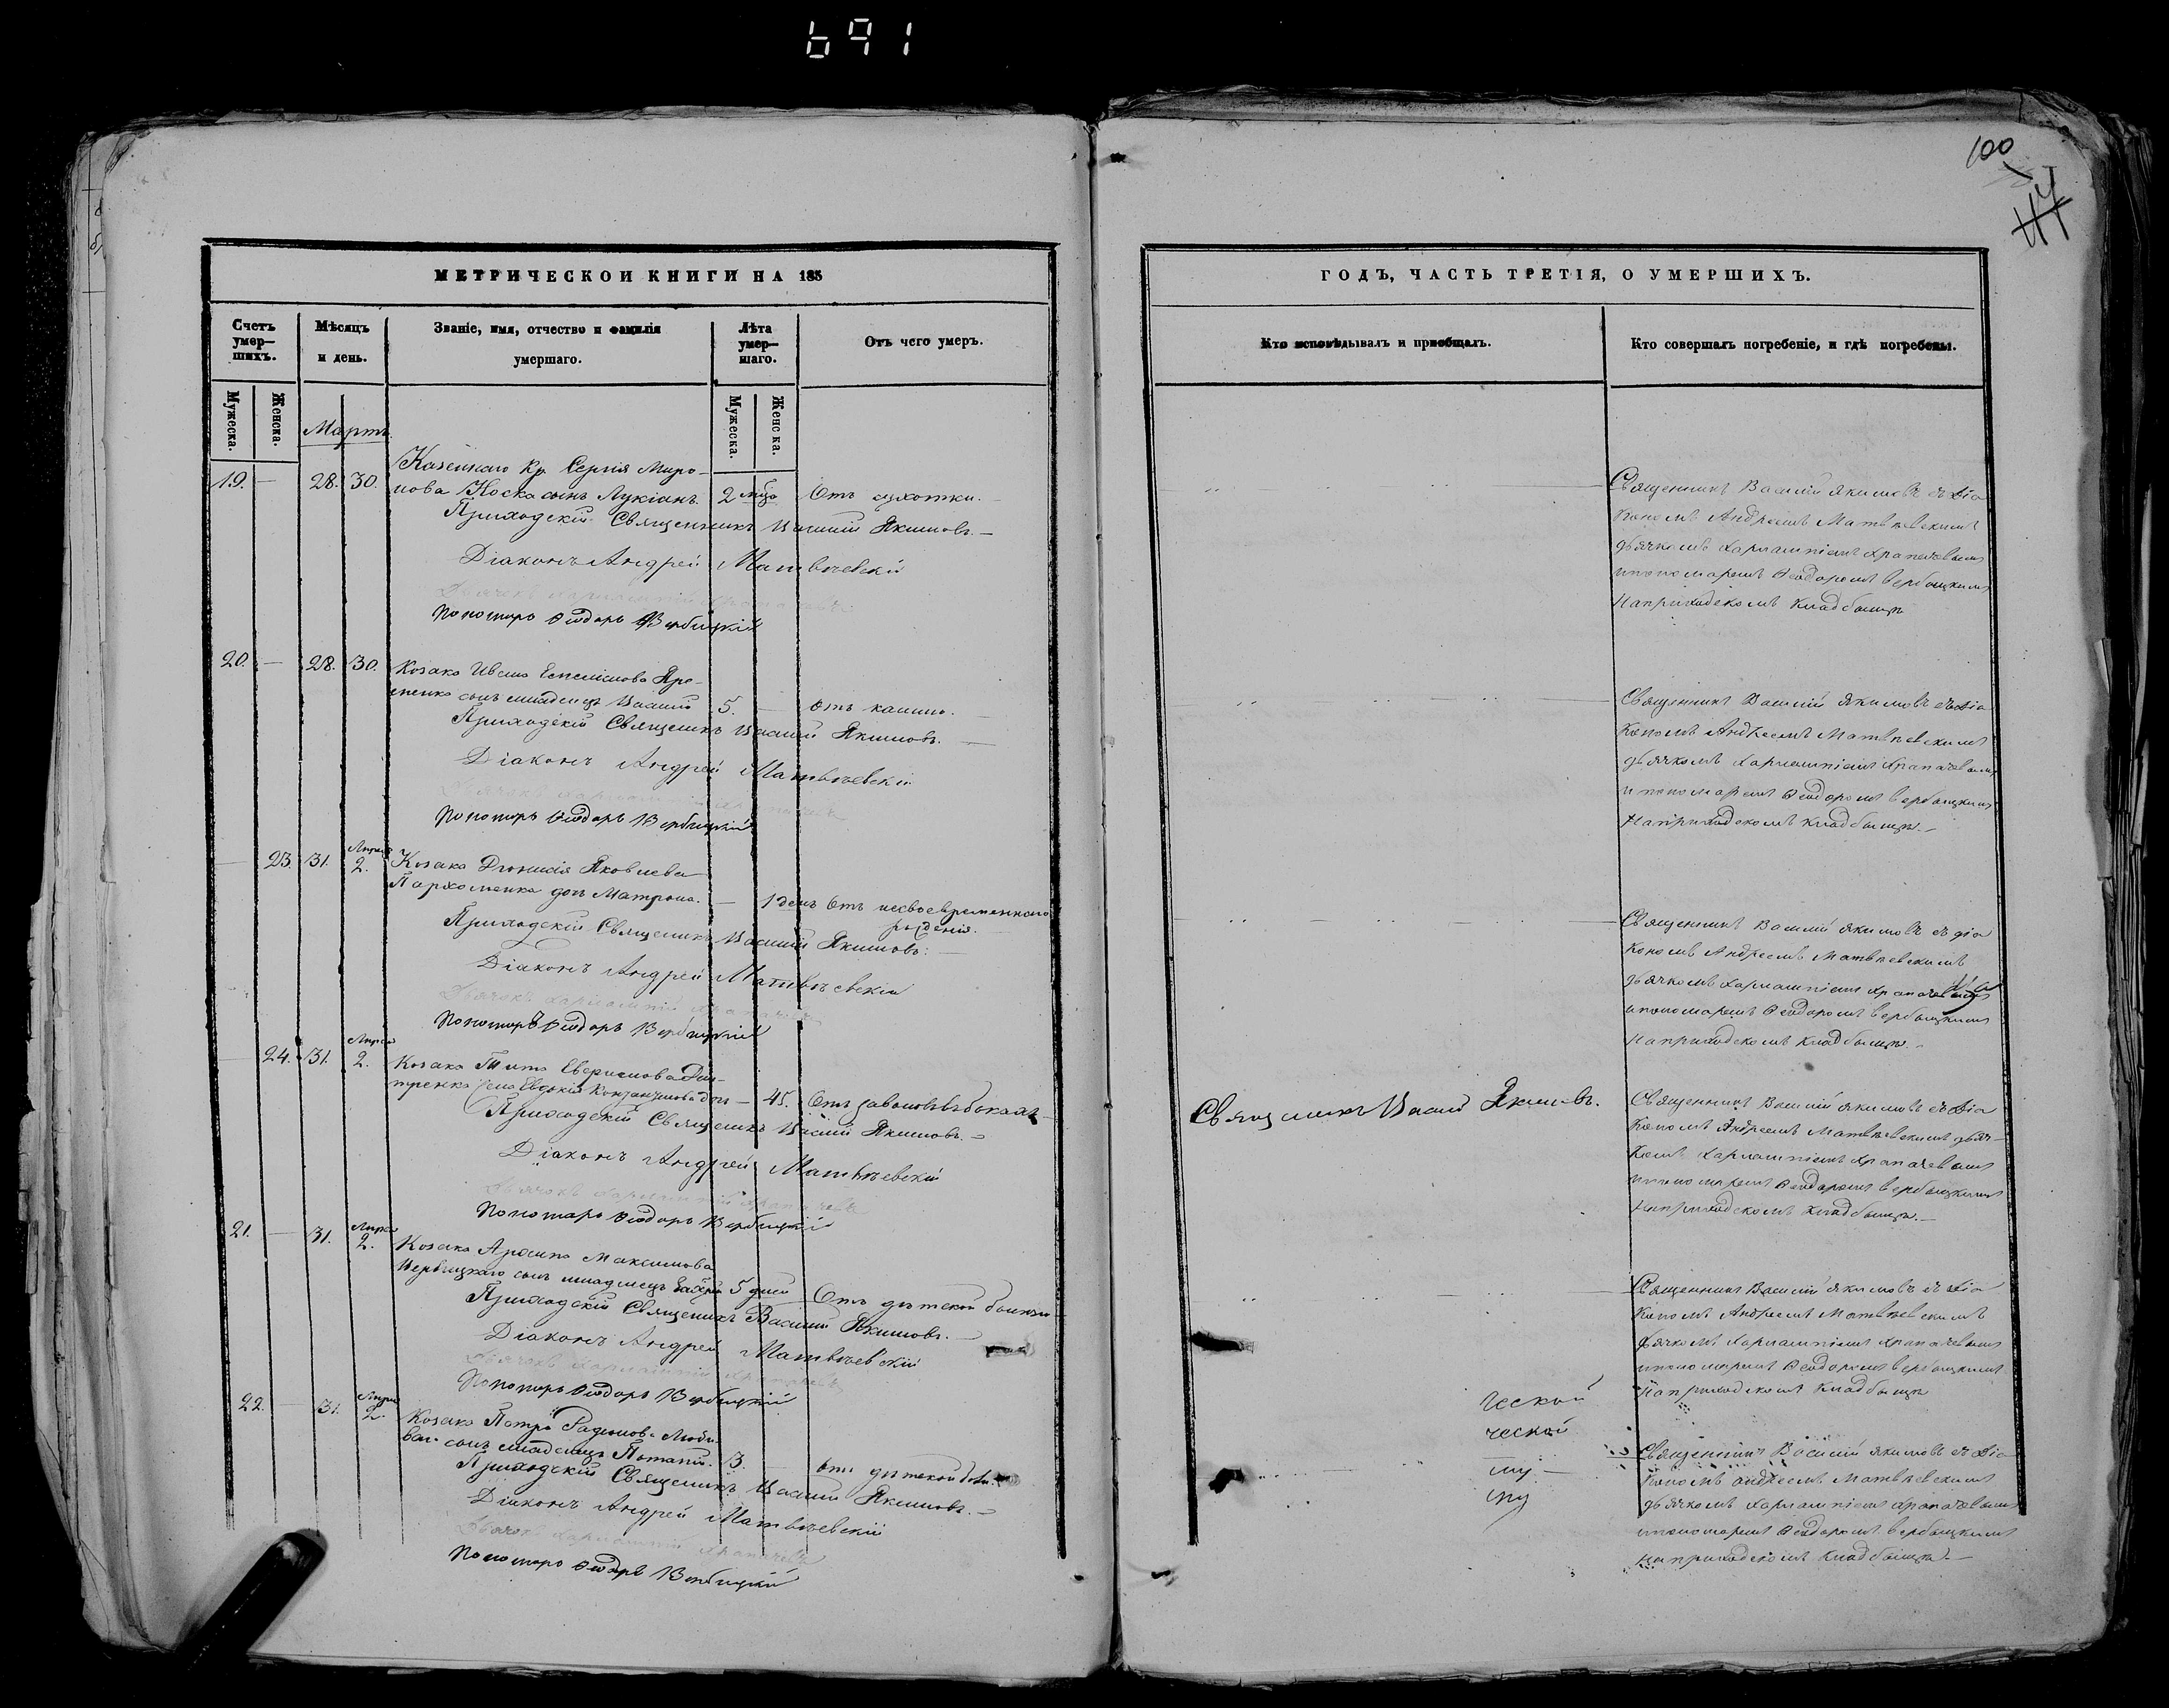 691
100
МЕТРИЧЕСКОИ КНИГИ НА 185
Счетъ умер-шихъ.
Мѣсяцъ и день.
Званіе, имя, отчество и фамилія умершаго.
Лѣта умер-шаго.
Отъ чего умеръ.
Мужеска.
Женска.
Мужеска.
Женска.
Мартъ
Казеннаго Кр. Сергія Миро-
19. — 28. 30. нова Носка сынъ Лукіанъ. 2 Отъ сухотки.
Приходскій Священникъ Василій Якимовъ.
Діаконъ Андрей Матвѣевскій
Пономарь Ѳеодоръ Вербицкій
20. — 28. 30. Козака Ивана
сынъ младенецъ Василій 5. — Отъ кашлю.
Приходскій Священикъ Василій Якимовъ.
Діаконъ Андрей Матвѣевскій
Пономарь Ѳеодоръ Вербицкій
— 23. 31. Апреля 2. Козака Діонисія Яковлева
Пархоменка дочь Матрона. — 1 день Отъ несвоевременнаго
рожденія.
Приходскій Священикъ Василій Якимовъ.
Діаконъ Андрей Матвѣевскій
Дьячокъ Харлампій
Пономарь Ѳеодоръ Вербицкій
— 24. 31. Апреля 2. Козака Тита
жена Евдокія — 45. Отъ
Приходскій Священикъ Василій Якимовъ.
Діаконъ Андрей Матвѣевскій
Пономарь Ѳеодоръ Вербицкій
21. — 31. Апреля 2. Козака Архипа Максимова
Вербицкаго сынъ младенецъ 5 дней Отъ дѣтской болезни
Приходскій Священикъ Василій Якимовъ.
Діаконъ Андрей Матвѣевскій
Пономарь Ѳеодоръ Вербицкій
22. — 31. Апреля 2. Козака Петра Радионова
сынъ младенецъ Потапій. 3. — отъ дѣтской
Приходскій Священикъ Василій Якимовъ.
Діаконъ Андрей Матвѣевскій
Пономарь Ѳеодоръ Вербицкій
ГОДЪ, ЧАСТЬ ТРЕТІЯ, О УМЕРШИХЪ.
Кто исповѣдывалъ и пріобщалъ.
Кто совершалъ погребеніе, и гдѣ погребены.
Священникъ Василій Якимовъ съ Діа
кономъ Андреемъ Матвѣевскимъ
дьячкомъ Харлампіемъ
и пономаремъ Ѳеодоромъ Вербицкимъ
На приходскомъ кладбищѣ
Священникъ Василій Якимовъ съ Діа
кономъ Андреемъ Матвѣевскимъ
дьячкомъ Харлампіемъ
и пономаремъ Ѳеодоромъ Вербицкимъ
На приходскомъ кладбищѣ.
Священникъ Василій Якимовъ съ діа
кономъ Андреемъ Матвѣевскимъ
дьячкомъ Харлампіемъ
и пономаремъ Ѳеодоромъ Вербицкимъ
На приходскомъ кладбищѣ.
Священикъ Василій Якимовъ.
Священникъ Василій Якимовъ съ Діа
кономъ Андреемъ Матвѣевскимъ дьяч-
комъ Харлампіемъ
и пономаремъ Ѳеодоромъ Вербицкимъ
На приходскомъ кладбищѣ.
Священникъ Василій Якимовъ съ Діа
кономъ Андреемъ Матвѣевскимъ
дьячкомъ Харлампіемъ
и пономаремъ Ѳеодоромъ Вербицкимъ
На приходскомъ кладбищѣ
ческой
ческой
му
му
Священникъ Василій Якимовъ съ Діа
кономъ Андреемъ Матвѣевскимъ
дьячкомъ Харлампіемъ
и пономаремъ Ѳеодоромъ Вербицкимъ
на приходскомъ кладбищѣ.